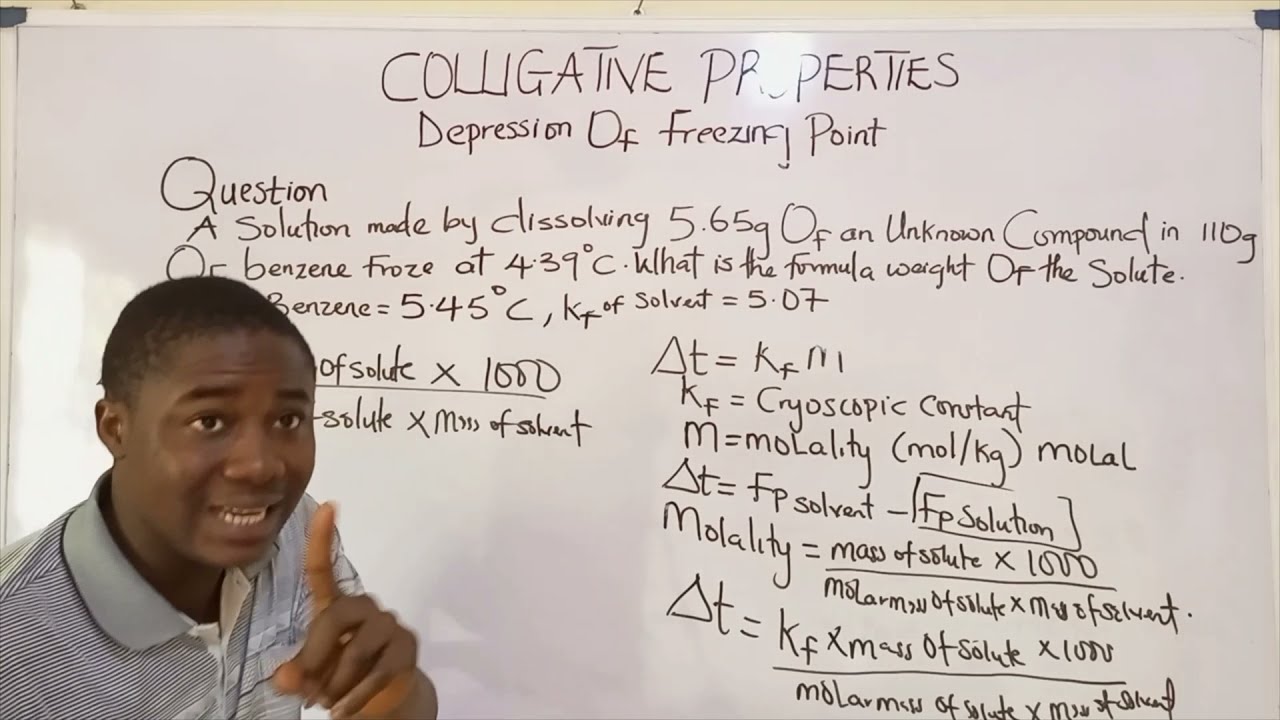 COLLIGATIVE PROPERTIES
Depression Of Freezing Point
Question
A Solution made by dissolving 5.65g Of an Unknown Compound in 110g
Of benzene froze at 4.39°C. What is the formula weight Of the Solute.
Benzene = 5.45°C, Kf of Solvent = 5.07
Of solute × 1000
solute × Mass of solvent
Δt = Kf m
Kf = Cryoscopic Constant
M = molality (mol/kg) molal
Δt = Fp solvent - [Fp Solution]
Molality = mass of solute × 1000
molar mass Of solute × mass of solvent.
Δt = Kf × mass Of solute × 1000
molar mass of solute × mass of solvent